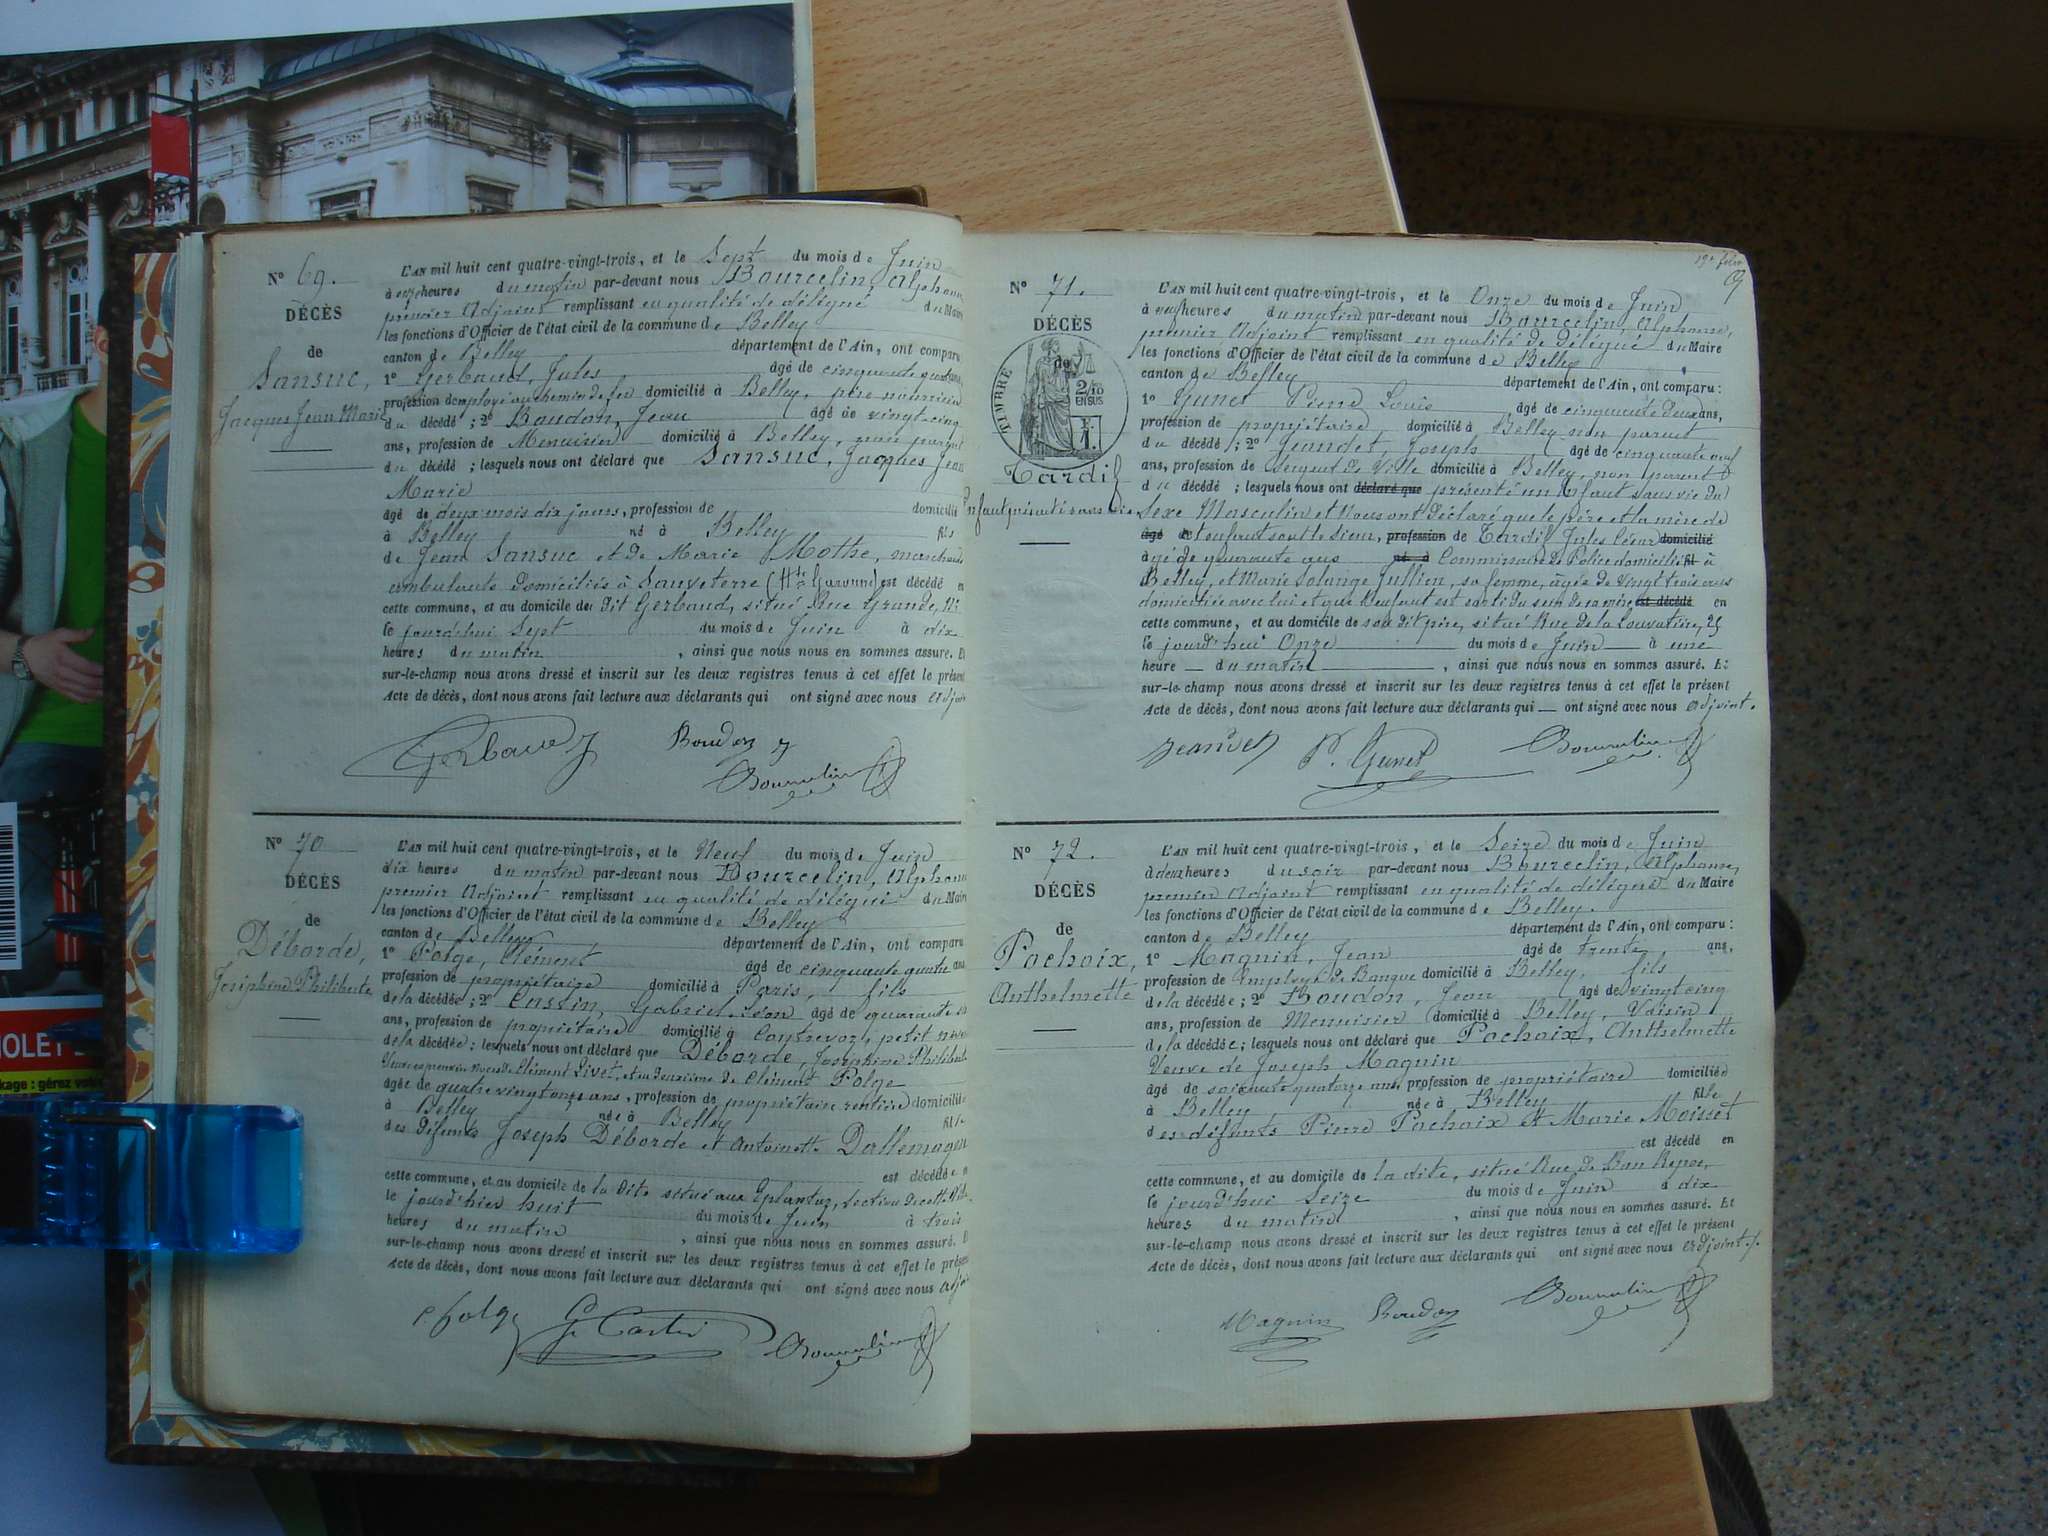 N° 69.
DÉCÈS
de
Sansuc,
Jacques Jean Marie
L'AN mil huit cent quatre-vingt-trois, et le Sept du mois de Juin
à onze heures du matin par-devant nous Bourcelin, Alphonse
premier Adjoint remplissant en qualité de délégué du Maire
les fonctions d'Officier de l'état civil de la commune de Belley
canton de Belley département de l'Ain, ont comparu
1° Gerbaud, Jules âgé de cinquante quatre
profession d'employé au chemin de fer domicilié à Belley, père nourricier
du décédé ; 2° Boudon, Jean âgé de vingt-cinq
ans, profession de Menuisier domicilié à Belley, non parent
du décédé ; lesquels nous ont déclaré que Sansuc, Jacques Jean
Marie
âgé de deux mois dix jours, profession de domicilié
à Belley né à Belley fils
de Jean Sansuc et de Marie Mothe, marchands
ambulants domiciliés à Sauveterre (Hte Garonne) est décédé en
cette commune, et au domicile du dit Gerbaud, situé Rue Grande,
le jourd'hui Sept du mois de Juin à dix
heures du matin, ainsi que nous nous en sommes assuré. E
sur-le-champ nous avons dressé et inscrit sur les deux registres tenus à cet effet le présent
Acte de décès, dont nous avons fait lecture aux déclarants qui ont signé avec nous adjoin
Gerbaud J
Boudon J
Bourcelin
N° 70
DÉCÈS
de
Déborde,
Joséphine Philiberte
L'AN mil huit cent quatre-vingt-trois, et le Neuf du mois de Juin
dix heures du matin par-devant nous Bourcelin, Alphonse
premier Adjoint remplissant en qualité de délégué du Maire
les fonctions d'Officier de l'état civil de la commune de Belley
canton de Belley département de l'Ain, ont comparu
1° Folge, Clément âgé de cinquante quatre ans
profession de propriétaire domicilié à Paris, fils
de la décédée ; 2° Gabriel Léon âgé de quarante
ans, profession de propriétaire domicilié à Contrevoz, petit neveu
de la décédée ; lesquels nous ont déclaré que Déborde, Joséphine Philiberte
Clément Livet, et en deuxième de Clément Folge
âgée de quatre vingt onze ans, profession de propriétaire rentière domiciliée
à Belley née à Belley fille
des défunts Joseph Déborde et Antoinette Dallemagne
est décédée en
cette commune, et au domicile de la dite situé aux Eplantaz, section de cette
le jourd'hier huit du mois de Juin à trois
heures du matin, ainsi que nous nous en sommes assuré. E
sur-le-champ nous avons dressé et inscrit sur les deux registres tenus à cet effet le présen
Acte de décès, dont nous avons fait lecture aux déclarants qui ont signé avec nous
Folge
Bourcelin
N° 71.
DÉCÈS
de
TIMBRE
2/10 EN SUS
F. 1.
Tardif
Enfant présenté sans vie
L'AN mil huit cent quatre-vingt-trois, et le Onze du mois de Juin
à neuf heures du matin par-devant nous Bourcelin, Alphonse,
premier Adjoint remplissant en qualité de délégué du Maire
les fonctions d'Officier de l'état civil de la commune de Belley
canton de Belley département de l'Ain, ont comparu :
1° Gunet Pierre Louis âgé de cinquante deux ans,
profession de propriétaire, domicilié à Belley non parent
du décédé ; 2° Jeandet, Joseph âgé de cinquante neuf
ans, profession de Sergent de Ville domicilié à Belley, non parent
du décédé ; lesquels nous ont déclaré que présenté un Enfant sans vie du
Sexe Masculin et Nous ont déclaré que le père et la mère de
âgé de l'enfant sont le sieur, profession de Tardif Jules Léon domicilié
âgé de quarante ans né à Commissaire de Police domicilié fil à
Belley, et Marie Solange Jullien, sa femme, âgée de Vingt trois ans
domiciliée avec lui et que l'Enfant est sorti du sein de sa mère est décédé en
cette commune, et au domicile de son dit père, situé Rue de la Louvatière, 25
le jourd'hui Onze du mois de Juin à une
heure du matin, ainsi que nous nous en sommes assuré. Et
sur-le-champ nous avons dressé et inscrit sur les deux registres tenus à cet effet le présent
Acte de décès, dont nous avons fait lecture aux déclarants qui ont signé avec nous adjoint.
Jeandet
P. Gunet
Bourcelin
N° 72.
DÉCÈS
de
Pochoix,
Anthelmette
L'AN mil huit cent quatre-vingt-trois, et le Seize du mois de Juin
à deux heures du soir par-devant nous Bourcelin, Alphonse,
premier Adjoint remplissant en qualité de délégué du Maire
les fonctions d'Officier de l'état civil de la commune de Belley.
canton de Belley département de l'Ain, ont comparu :
1° Magnin, Jean âgé de trente ans,
profession de Employé de Banque domicilié à Belley, fils
de la décédée ; 2° Boudon, Jean âgé de vingt cinq
ans, profession de Menuisier domicilié à Belley, Voisin
de la décédée ; lesquels nous ont déclaré que Pochoix, Anthelmette
Veuve de Joseph Magnin
âgé de soixante quatorze ans, profession de propriétaire domiciliée
à Belley née à Belley fille
des défunts Pierre Pochoix et Marie Moisset
est décédé en
cette commune, et au domicile de la dite, situé Rue de Bon Repos,
le jourd'hui Seize du mois de Juin à dix
heures du matin, ainsi que nous nous en sommes assuré. Et
sur-le-champ nous avons dressé et inscrit sur les deux registres tenus à cet effet le présent
Acte de décès, dont nous avons fait lecture aux déclarants qui ont signé avec nous adjoint.
Magnin
Boudon
Bourcelin